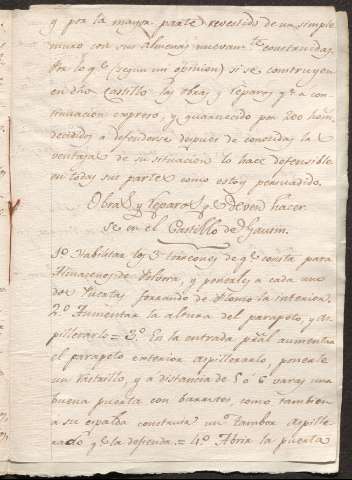 y por la mayor parte revestido de un simple
muro con sus almenas nuevam.te construidas.
Por lo q.e (segun mi opinion) si se construyen
en dho Castillo las obras y reparos q.e a con-
tinuacion expreso, y guarnecido por 200 hom.s
decididos a defenderse despues de conocidas la
ventaja de su situacion lo hace defensible
en todas sus partes como estoy persuadido.
Obras y reparos q.e deven hacer
se en el Castillo de Gaucin.
1.º Havilitar los 3 torreones de q.e consta para
Almazenes de Polvora, y ponerles a cada uno
dos Puertas forrando de Plomo la interior.
2.º Aumentar la altura del parapeto, y as-
pillerarlo = 3.º En la entrada pral aumentar
el parapeto exterior aspillerarlo, ponerle
un rastrillo, y á distancia de 5 ó 6 varas una
buena puerta con barrotes, como tambien
a su espalda construir un tambor aspille-
rado q.e la defienda. = 4.º Abrir la puerta